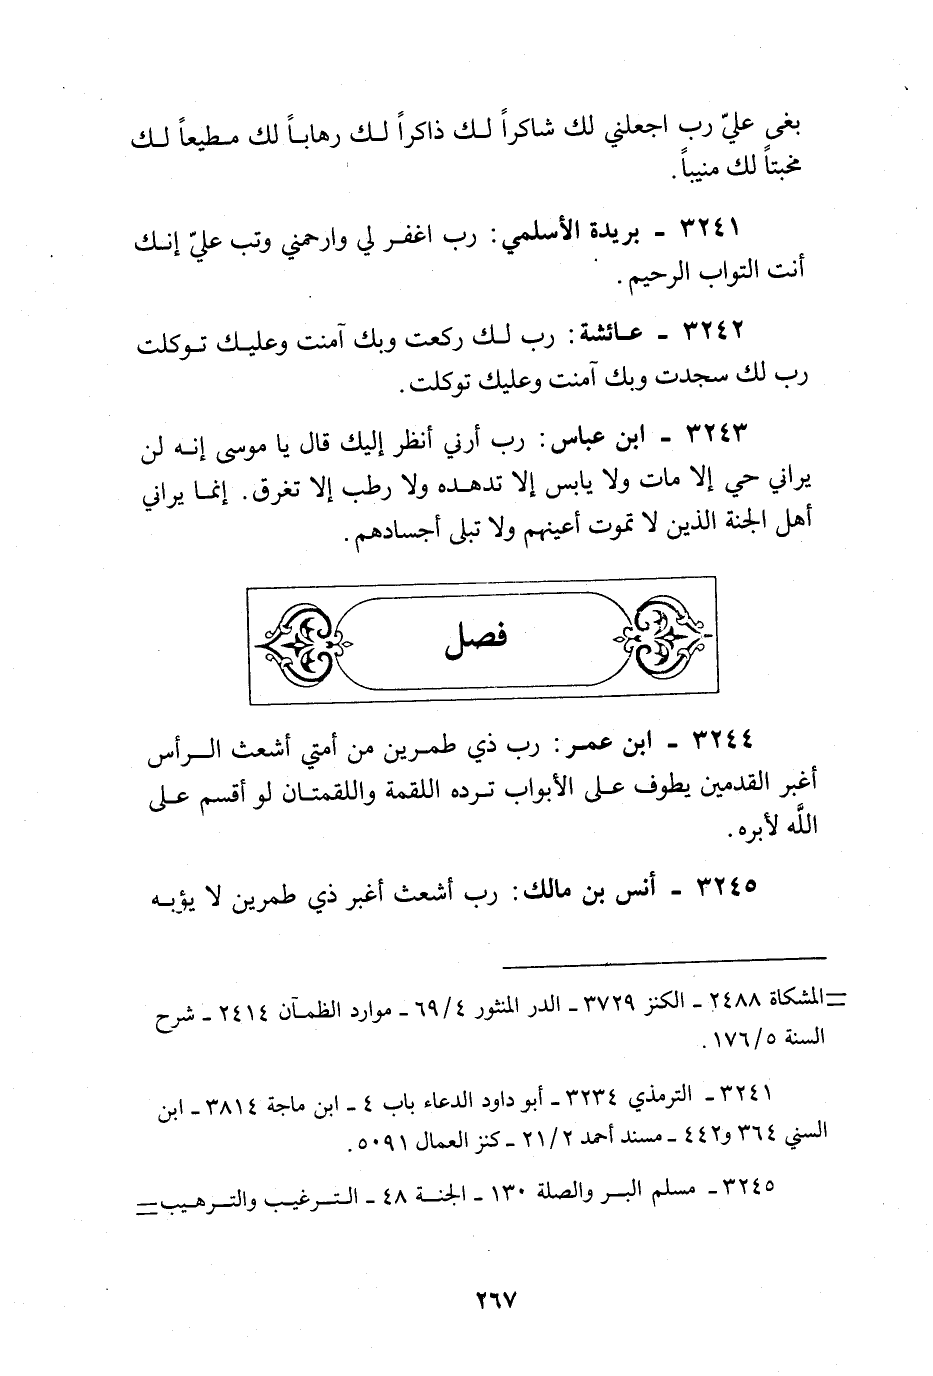 بغى عليّ رب اجعلني لك شاكراً لك ذاكراً لك رهاباً لك مطيعاً لك
مخبتاً لك منيباً.
٣٢٤١ ـ بريدة الأسلمي: رب اغفر لي وارحمني وتب عليّ إنك
أنت التواب الرحيم.
٣٢٤٢ ـ عائشة: رب لك ركعت وبك آمنت وعليك توكلت
رب لك سجدت وبك آمنت وعليك توكلت.
٣٢٤٣ ـ ابن عباس: رب أرني أنظر إليك قال يا موسى إنه لن
يراني حي إلا مات ولا يابس إلا تدهده ولا رطب إلا تغرق. إنما يراني
أهل الجنة الذين لا تموت أعينهم ولا تبلى أجسادهم.
فصل
٣٢٤٤ ـ ابن عمر: رب ذي طمرين من أمتي أشعث الرأس
أغبر القدمين يطوف على الأبواب ترده اللقمة واللقمتان لو أقسم على
اللَّه لأبره.
٣٢٤٥ ـ أنس بن مالك: رب أشعث أغبر ذي طمرين لا يؤبه
= المشكاة ٢٤٨٨ ـ الكنز ٣٧٢٩ ـ الدر المنثور ٦٩/٤ ـ موارد الظمآن ٢٤١٤ ـ شرح
السنة ١٧٦/٥.
٣٢٤١ ـ الترمذي ٣٢٣٤ ـ أبو داود الدعاء باب ٤ ـ ابن ماجة ٣٨١٤ ـ ابن
السني ٣٦٤ و٤٤٢ ـ مسند أحمد ٢١/٢ ـ كنز العمال ٥٠٩١.
٣٢٤٥ ـ مسلم البر والصلة ١٣٠ ـ الجنة ٤٨ ـ الترغيب والترهيب =
٢٦٧